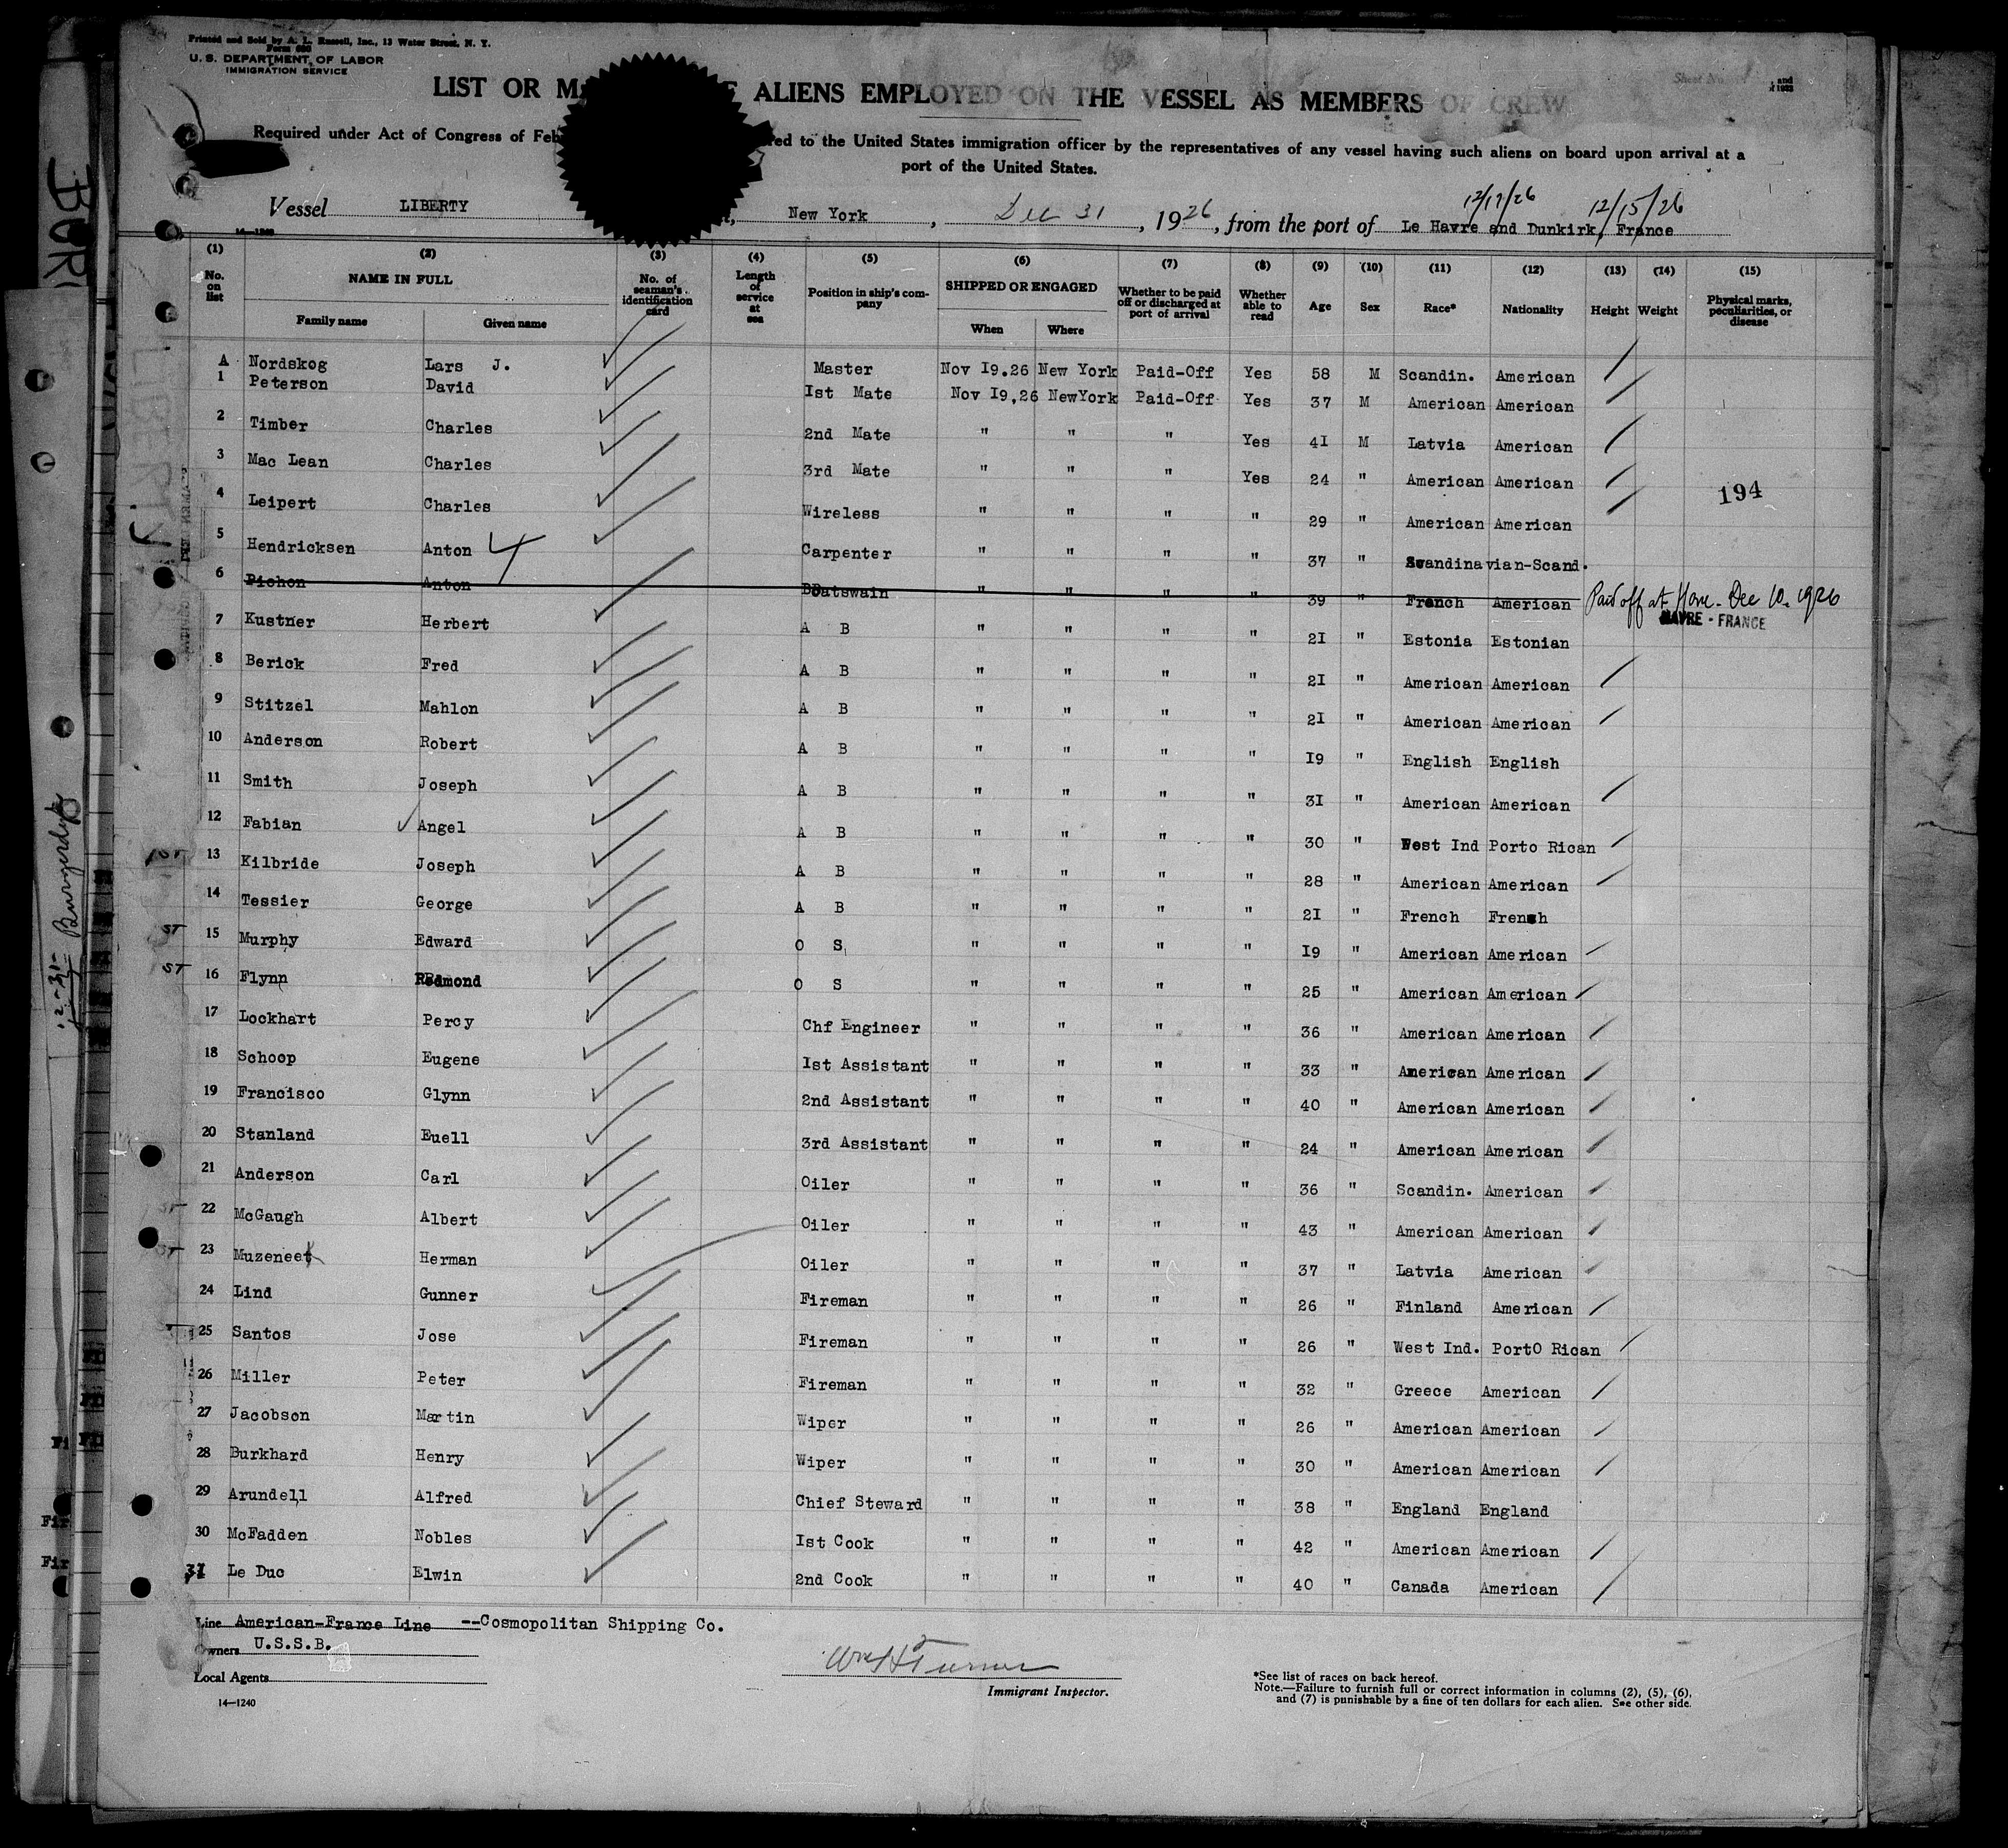 Printed and Sold by A. L. Russell, Inc., 13 Water Street, N. Y.
Form 680
U. S. DEPARTMENT OF LABOR
IMMIGRATION SERVICE
LIST OR ALIENS EMPLOYED ON THE VESSEL AS MEMBERS OF CREW
Required under Act of Congress of Feb red to the United States immigration officer by the representatives of any vessel having such aliens on board upon arrival at a
port of the United States.
12/17/26 12/15/26
Vessel LIBERTY , New York , Dec 31 , 1926 , from the port of Le Havre and Dunkirk, France
(1) (2) (3) (4) (5) (6) (7) (8) (9) (10) (11) (12) (13) (14) (15)
No. on list NAME IN FULL Family name Given name No. of seaman's identification card Length of service at sea Position in ship's company SHIPPED OR ENGAGED When Where Whether to be paid off or discharged at port of arrival Whether able to read Age Sex Race* Nationality Height Weight Physical marks, peculiarities, or disease
A Nordskog Lars J. Master Nov 19.26 New York Paid-Off Yes 58 M Scandin. American
1 Peterson David 1st Mate Nov 19,26 NewYork Paid-Off Yes 37 M American American
2 Timber Charles 2nd Mate " " " Yes 41 M Latvia American
3 Mac Lean Charles 3rd Mate " " " Yes 24 " American American
194
4 Leipert Charles Wireless " " " " 29 " American American
5 Hendricksen Anton Carpenter " " " " 37 " Scandinavian-Scand.
6 Pichon Anton Boatswain " " " " 39 " French American Paid off at Havre. Dec 10. 1926
HAVRE - FRANCE
7 Kustner Herbert A B " " " " 21 " Estonia Estonian
8 Berick Fred A B " " " " 21 " American American
9 Stitzel Mahlon A B " " " " 21 " American American
10 Anderson Robert A B " " " " 19 " English English
11 Smith Joseph A B " " " " 31 " American American
12 Fabian Angel A B " " " " 30 " West Ind Porto Rican
13 Kilbride Joseph A B " " " " 28 " American American
14 Tessier George A B " " " " 21 " French French
15 Murphy Edward O S " " " " 19 " American American
16 Flynn Redmond O S " " " " 25 " American American
17 Lockhart Percy Chf Engineer " " " " 36 " American American
18 Schoop Eugene 1st Assistant " " " " 33 " American American
19 Francisco Glynn 2nd Assistant " " " " 40 " American American
20 Stanland Euell 3rd Assistant " " " " 24 " American American
21 Anderson Carl Oiler " " " " 36 " Scandin. American
22 McGaugh Albert Oiler " " " " 43 " American American
23 Muzeneek Herman Oiler " " " " 37 " Latvia American
24 Lind Gunner Fireman " " " " 26 " Finland American
25 Santos Jose Fireman " " " " 26 " West Ind. PortO Rican
26 Miller Peter Fireman " " " " 32 " Greece American
27 Jacobson Martin Wiper " " " " 26 " American American
28 Burkhard Henry Wiper " " " " 30 " American American
29 Arundell Alfred Chief Steward " " " " 38 " England England
30 McFadden Nobles 1st Cook " " " " 42 " American American
31 Le Duc Elwin 2nd Cook " " " " 40 " Canada American
Line American-France Line --Cosmopolitan Shipping Co.
Owners U.S.S.B.
Local Agents
Wm H Turner
Immigrant Inspector.
14—1240
*See list of races on back hereof.
Note.—Failure to furnish full or correct information in columns (2), (5), (6),
and (7) is punishable by a fine of ten dollars for each alien. See other side.